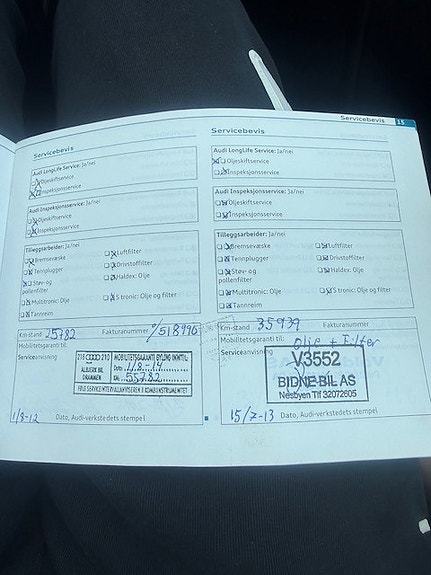 Servicebevis 15
Servicebevis
Audi LongLife Service: Ja/nei
Oljeskiftservice
Inspeksjonsservice
Audi Inspeksjonsservice: Ja/nei
Oljeskiftservice
Inspeksjonsservice
Tilleggsarbeider: Ja/nei
Bremsevæske
Luftfilter
Tennplugger
Drivstoffilter
Støv- og
pollenfilter
Haldex: Olje
Multitronic: Olje
S tronic: Olje og filter
Tannreim
Km-stand 25782 Fakturanummer
Mobilitetsgaranti til:
Serviceanvisning
218 210
ALBJERK BIL
DRAMMEN
MOBILITETSGARANTI GYLDIG INNTIL:
Dato: 1/8-14
KM: 55782
1/8-12 Dato, Audi-verkstedets stempel
Servicebevis
Audi LongLife Service: Ja/nei
Oljeskiftservice
Inspeksjonsservice
Audi Inspeksjonsservice: Ja/nei
Oljeskiftservice
Inspeksjonsservice
Tilleggsarbeider: Ja/nei
Bremsevæske
Luftfilter
Tennplugger
Drivstoffilter
Støv- og
pollenfilter
Haldex: Olje
Multitronic: Olje
S tronic: Olje og filter
Tannreim
Km-stand 35939 Fakturanummer
Mobilitetsgaranti til: Olje + Filter
Serviceanvisning
V3552
BIDNE BIL AS
Nesbyen Tlf 32072605
15/7-13 Dato, Audi-verkstedets stempel